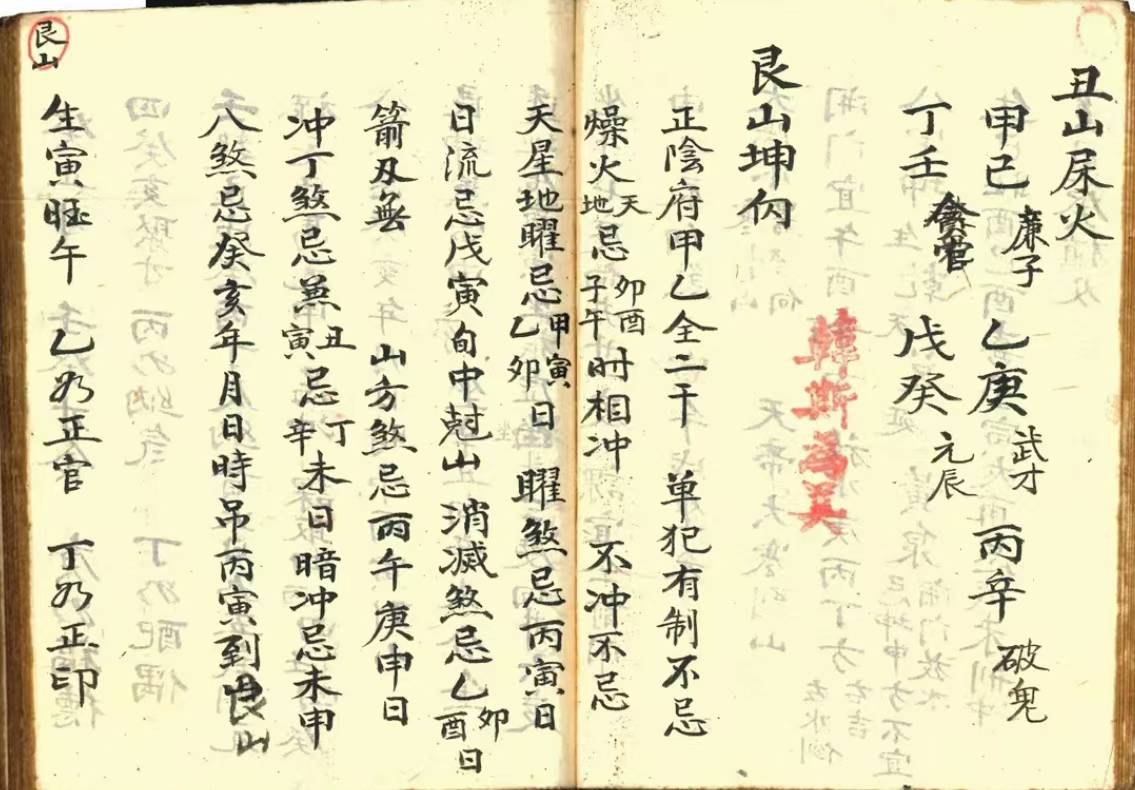 丑山尿火
甲己 廉子 乙庚 武才 丙辛 破鬼
丁壬 貪官 戊癸 元辰
艮山坤向
正陰府甲乙全二干 单犯有制不忌
燥火天地忌卯酉子午时相冲 不冲不忌
天星地曜忌甲寅乙卯日 曜煞忌丙寅日
日流忌戊寅旬中尅山 消滅煞忌乙卯酉日
箭刃無 山方煞忌丙午庚申日
冲丁煞忌無丑寅忌丁辛未日暗冲忌未申
八煞忌癸亥年月日時吊丙寅到艮山
艮山
生寅旺午 乙为正官 丁为正印
韓斯為美